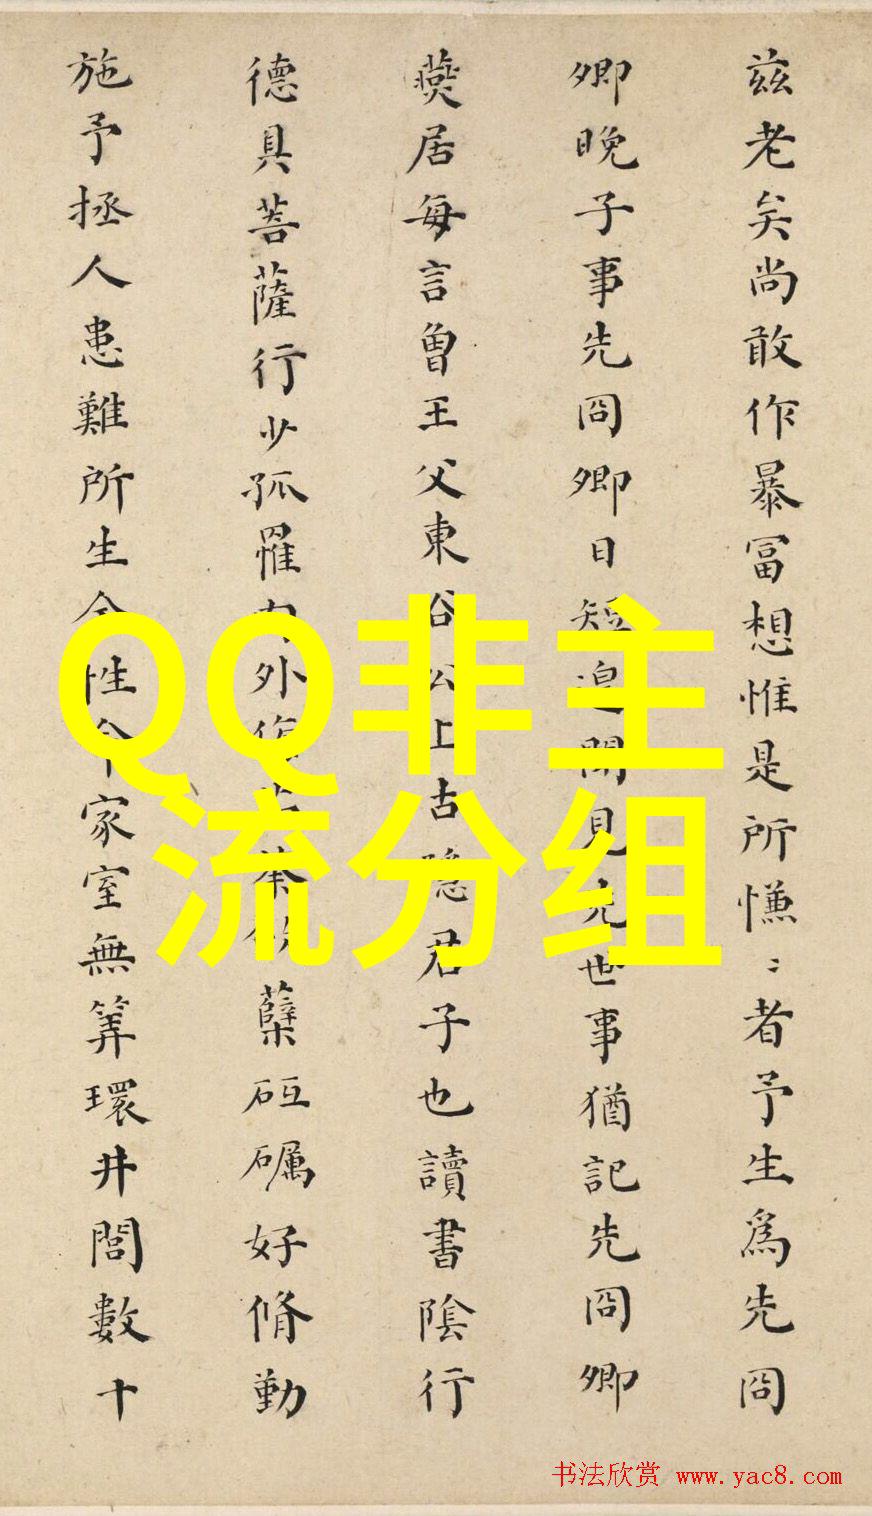 兹老矣尚敢作暴冨想惟是所慊〻者予生為先冏
卿晚子事先冏卿日短追聞見先世事猶記先冏卿
燕居每言曾王父東谷公上古隱君子也讀書陰行
德具菩薩行少孤罹内外荼蘗砥礪好脩勤
施予拯人患難所生全性命家室無筭環井閭數十
QQ非主
流分组
书法欣赏 www.yac8.com